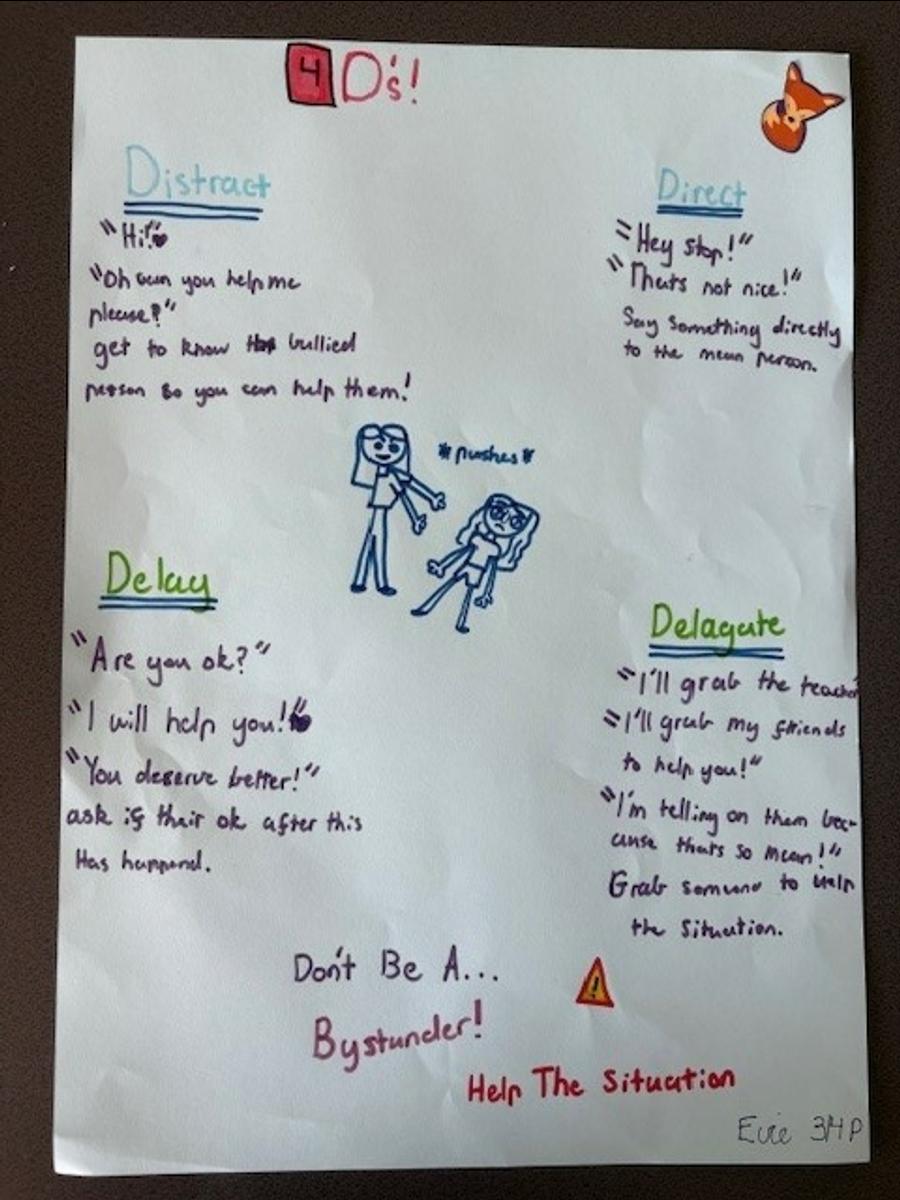 4 D's!
Distract
"Hi!"
"Oh can you help me
please?"
get to know the bullied
person so you can help them!
Direct
"Hey stop!"
"Thats not nice!"
Say something directly
to the mean person.
*pushes*
Delay
"Are you ok?"
"I will help you!"
"You deserve better!"
ask if their ok after this
Has happend.
Delagate
"I'll grab the teacher
"I'll grab my friends
to help you!"
"I'm telling on them bec-
ause thats so mean!"
Grab someone to help
the situation.
Don't Be A...
Bystander!
Help The Situation
Evie 3/4P